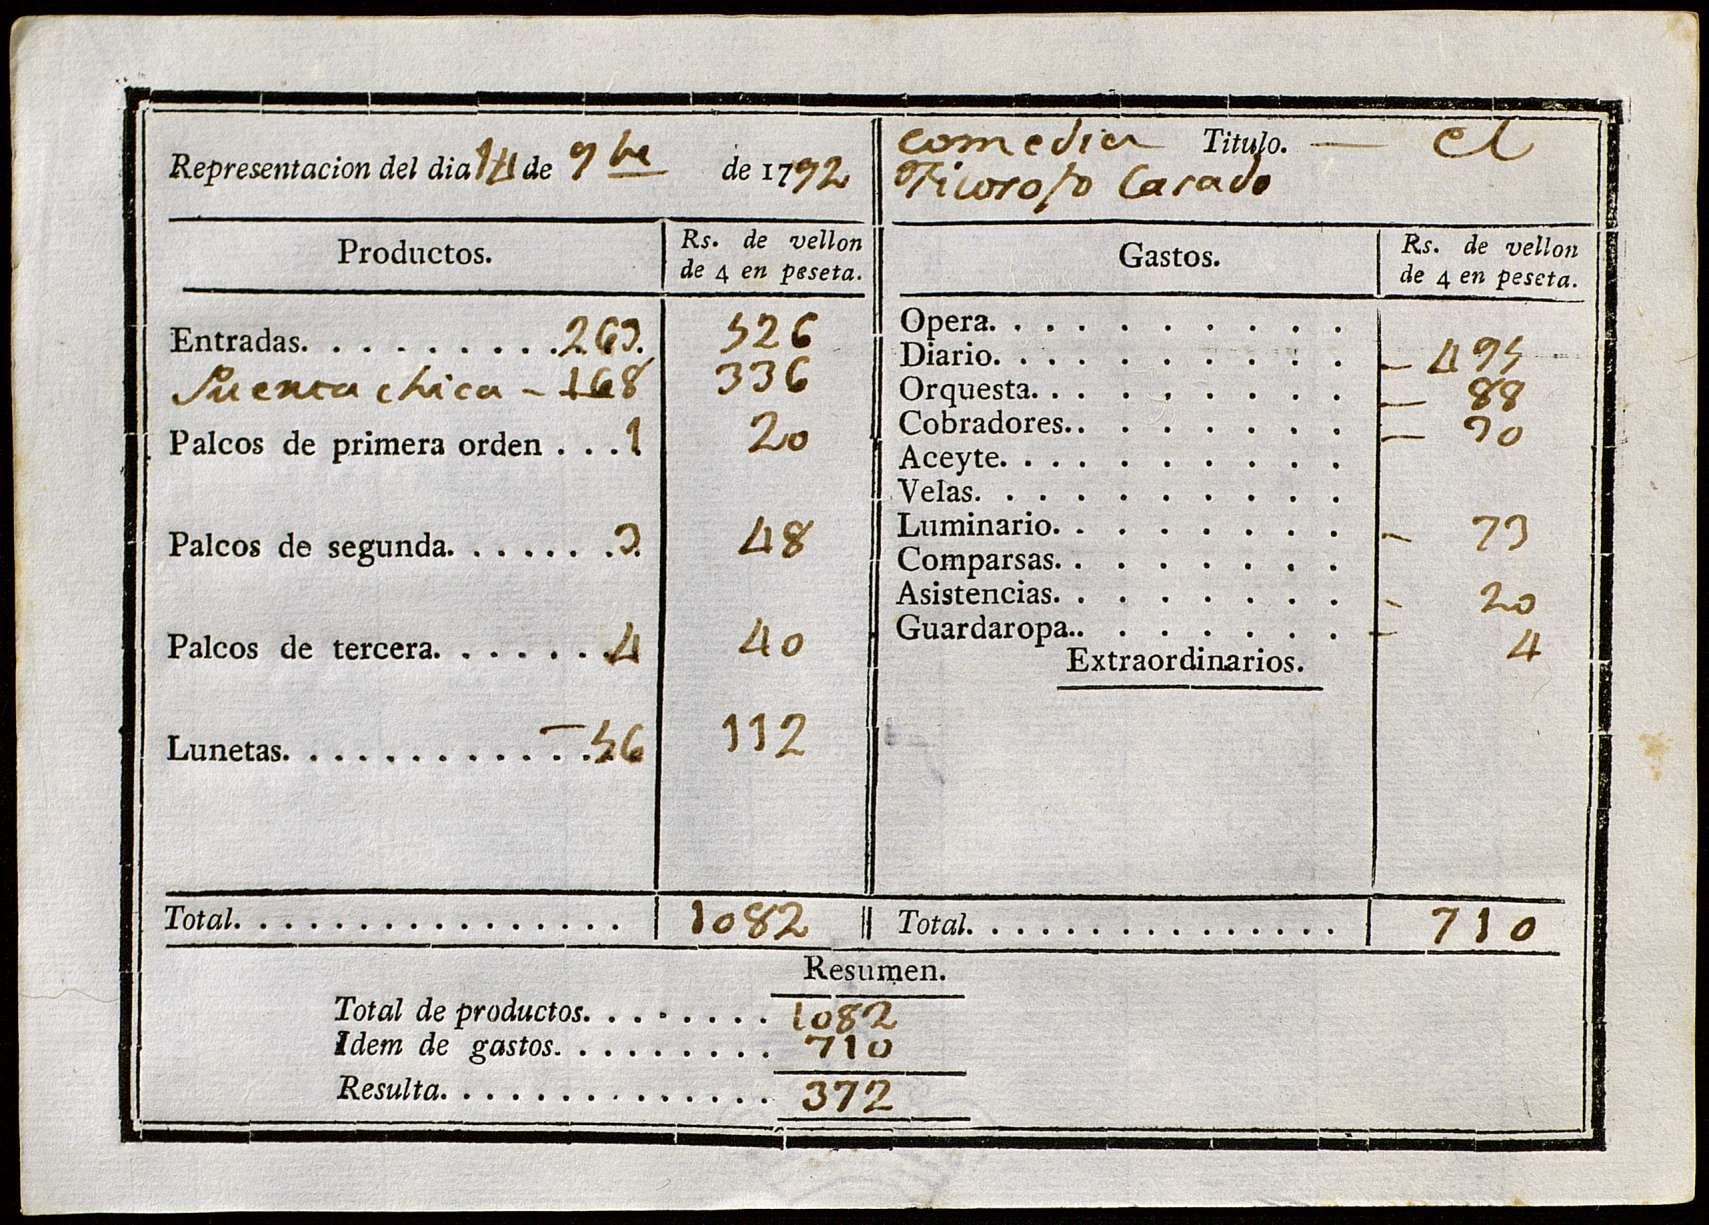 Representacion del dia 14 de 9bre de 1792
comedia Titulo. — el
Filosofo Casado
Productos.
Rs. de vellon
de 4 en peseta.
Entradas. . . . . . . . . . 263. 526
Puerta chica - 168 336
Palcos de primera orden . . . 1 20
Palcos de segunda. . . . . . . 3. 48
Palcos de tercera. . . . . . . 4 40
Lunetas. . . . . . . . . . . . . 56 112
Total. . . . . . . . . . . . . . . . 1082
Gastos.
Rs. de vellon
de 4 en peseta.
Opera. . . . . . . . . . .
Diario. . . . . . . . . . . - 495
Orquesta. . . . . . . . . . - 88
Cobradores. . . . . . . . . - 30
Aceyte. . . . . . . . . . .
Velas. . . . . . . . . . .
Luminario. . . . . . . . . - 73
Comparsas. . . . . . . . .
Asistencias. . . . . . . . . - 20
Guardaropa. . . . . . . . . - 4
Extraordinarios.
Total. . . . . . . . . . . . . . . . 710
Resumen.
Total de productos. . . . . . . . 1082
Idem de gastos. . . . . . . . . . 710
Resulta. . . . . . . . . . . . . . . 372